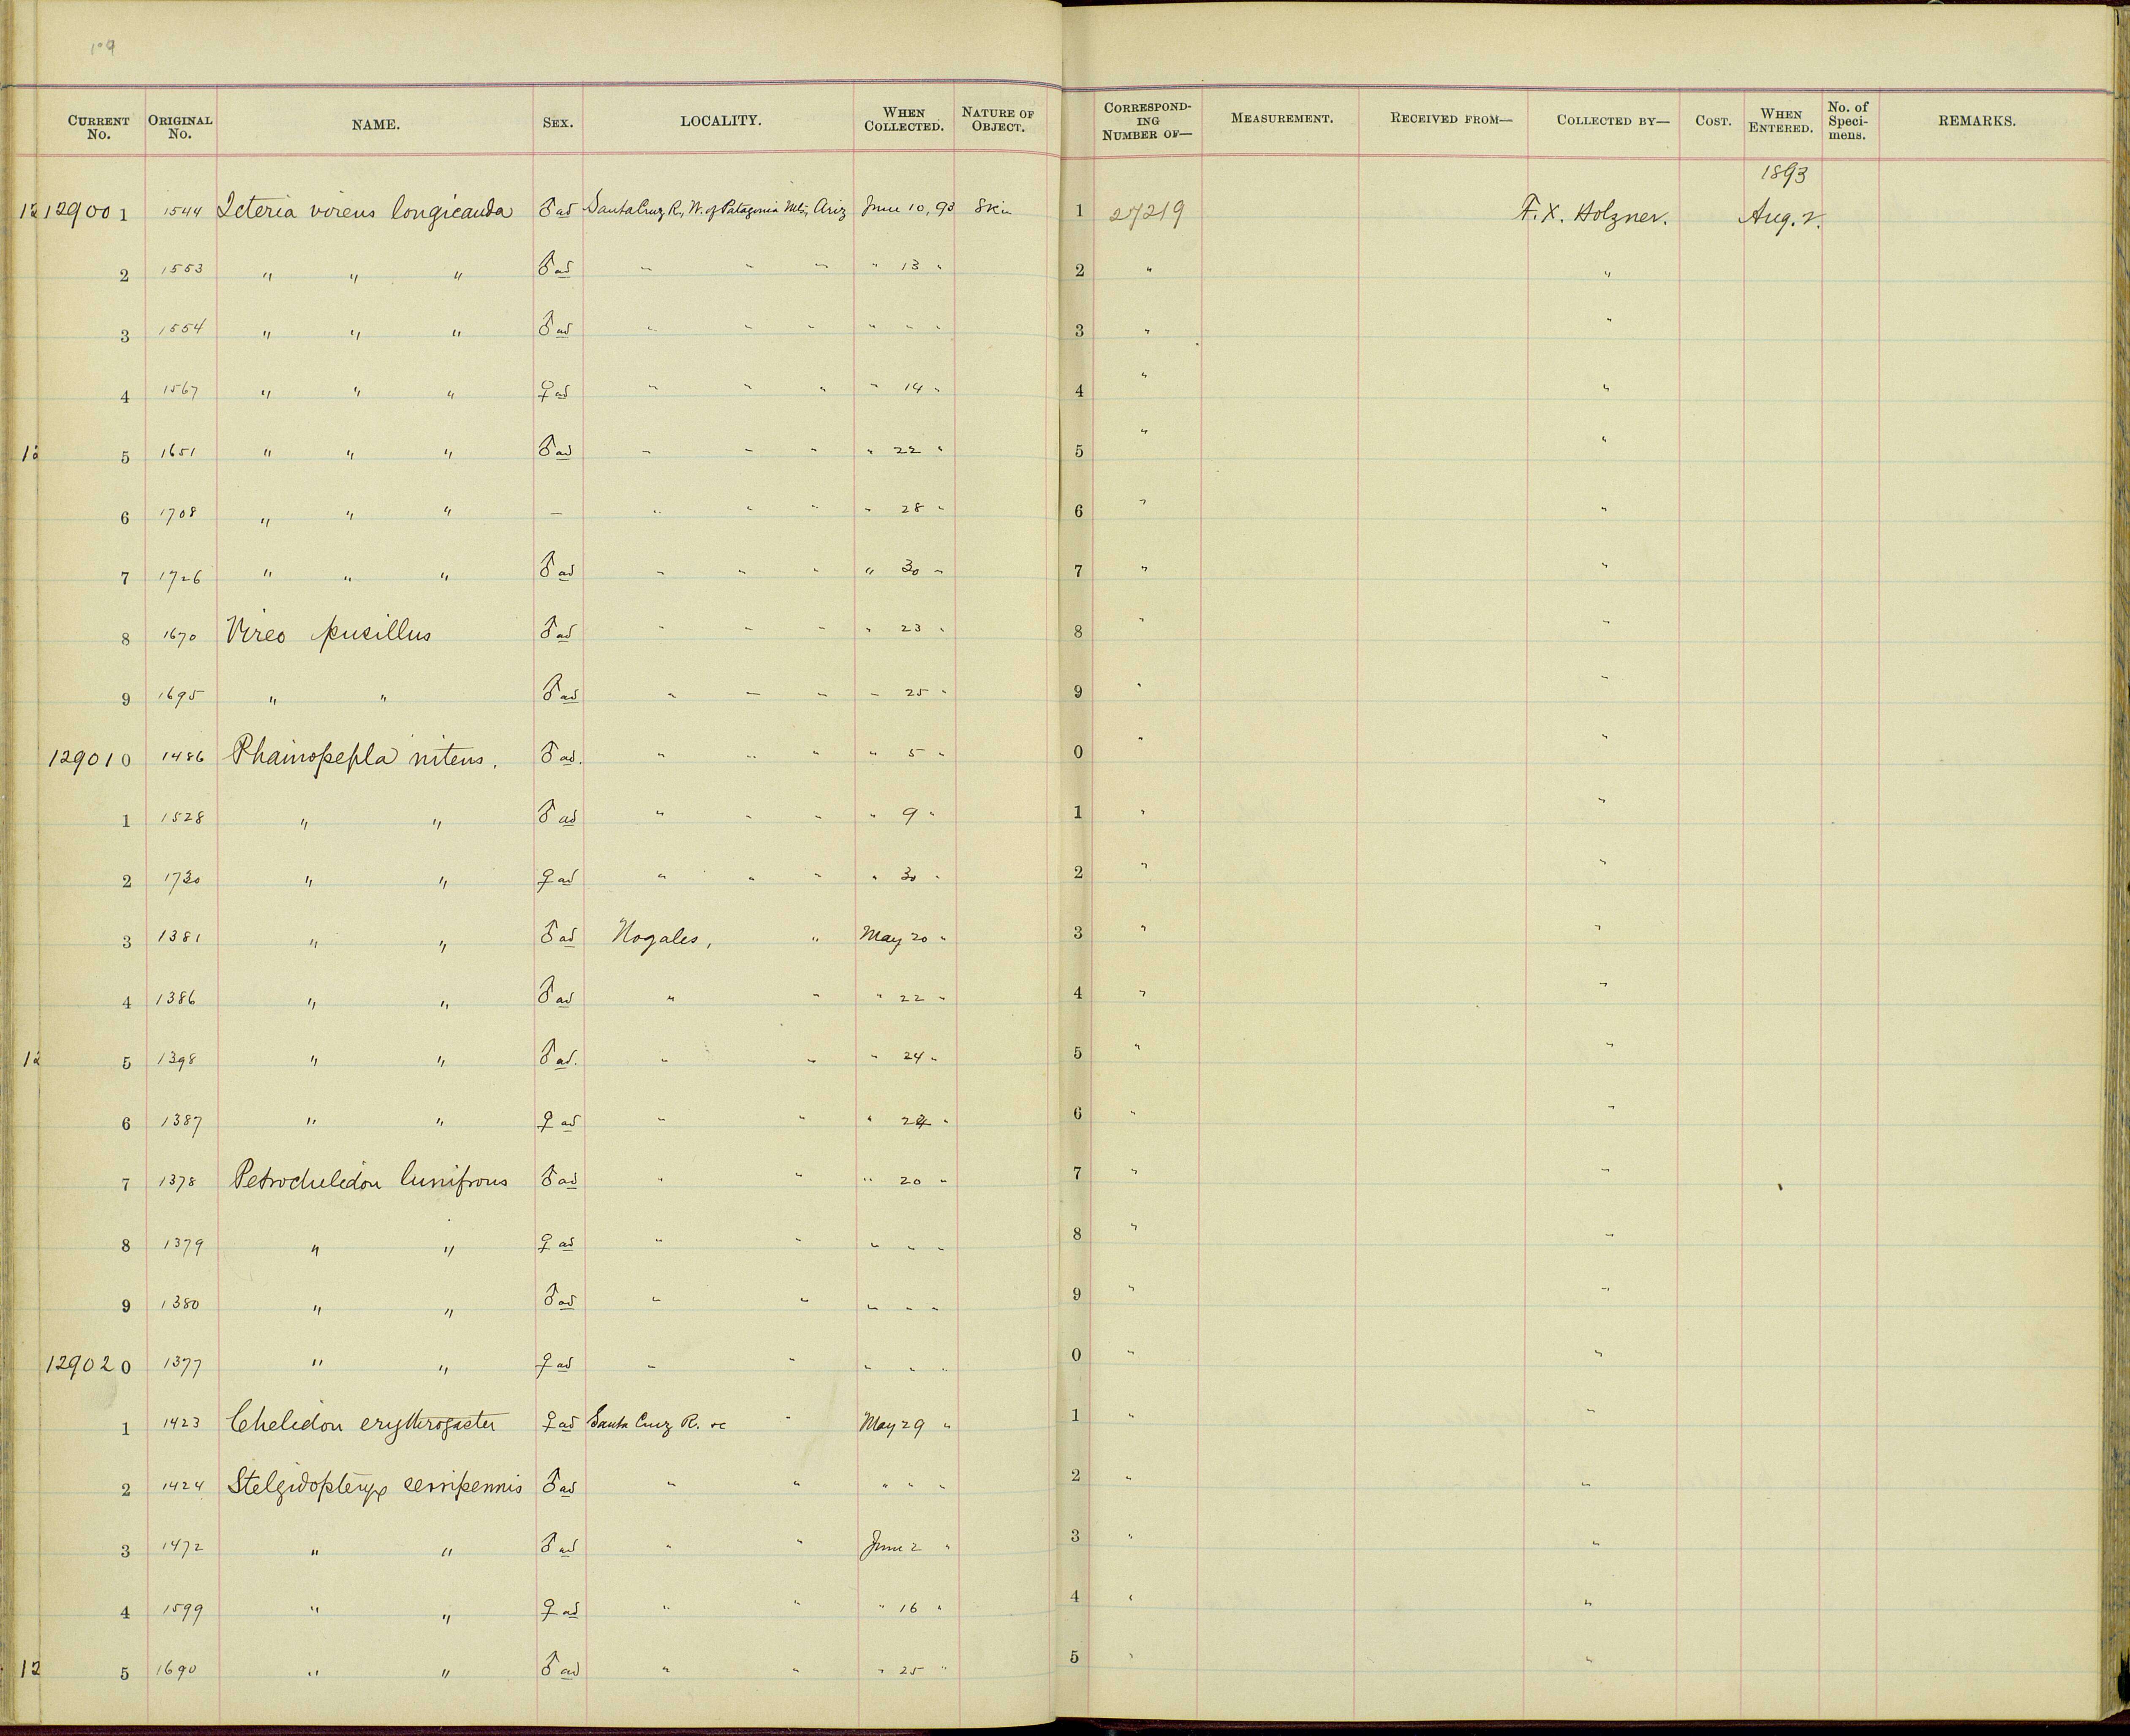 109
CURRENT No. ORIGINAL No. NAME. SEX. LOCALITY. WHEN COLLECTED. NATURE OF OBJECT. CORRESPONDING NUMBER OF— MEASUREMENT. RECEIVED FROM— COLLECTED BY— COST. WHEN ENTERED. No. of Specimens. REMARKS.
1893
12 129001 1544 Icteria virens longicauda ♂ ad Santa Cruz R., W. of Patagonia Mts, Ariz June 10, 93 Skin 1 27219 F. X. Holzner. Aug. 2.
2 1553 " " " ♂ ad " " " " 13 " 2 " "
3 1554 " " " ♂ ad " " " " " " 3 " "
4 1567 " " " ♀ ad " " " " 14 " 4 " "
5 1651 " " " ♂ ad " " " " 22 " 5 " "
6 1708 " " " — " " " " 28 " 6 " "
7 1726 " " " ♂ ad " " " " 30 " 7 " "
8 1670 Vireo pusillus ♂ ad " " " " 23 " 8 " "
9 1695 " " ♂ ad " " " " 25 " 9 " "
129010 1486 Phainopepla nitens. ♂ ad. " " " " 5 " 0 " "
1 1528 " " ♂ ad " " " " 9 " 1 " "
2 1730 " " ♀ ad " " " " 30 " 2 " "
3 1381 " " ♂ ad Nogales, " May 20 " 3 " "
4 1386 " " ♂ ad " " " 22 " 4 " "
12 5 1398 " " ♂ ad. " " " 24 " 5 " "
6 1387 " " ♀ ad " " " " 6 " "
7 1378 Petrochelidon lunifrons ♂ ad " " " 20 " 7 " "
8 1379 " " ♀ ad " " " " " 8 " "
9 1380 " " ♂ ad " " " " " 9 " "
129020 1377 " " ♀ ad " " " " " 0 " "
1 1423 Chelidon erythrogaster ♀ ad Santa Cruz R. &c " May 29 " 1 " "
2 1424 Stelgidopteryx serripennis ♂ ad " " " " " 2 " "
3 1472 " " ♂ ad " " June 2 " 3 " "
4 1599 " " ♀ ad " " " 16 " 4 " "
12 5 1690 " " ♂ ad " " " 25 " 5 " "